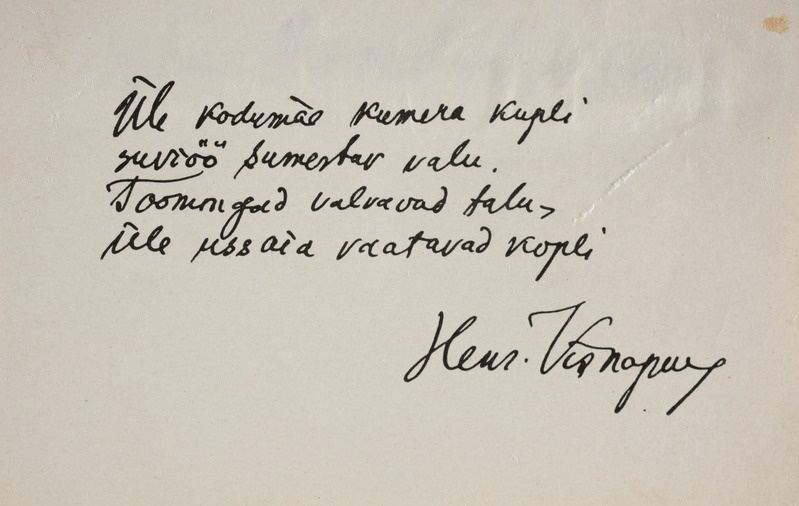 Üle kodumäe kumera kupli
suviöö sumestav valu.
Toomingad valvavad talu,
üle ussaia vaatavad kopli
Henr. Visnapuu